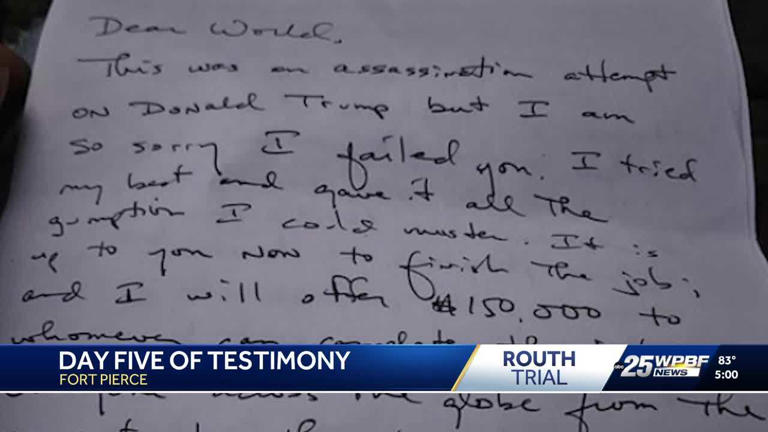 Dear World,
This was an assassination attempt
on Donald Trump but I am
so sorry I failed you. I tried
my best and gave it all the
gumption I could muster. It is
up to you now to finish the job;
and I will offer $150,000 to
whomever can complete the job
DAY FIVE OF TESTIMONY
FORT PIERCE
ROUTH
TRIAL
abc 25 WPBF
NEWS
83°
5:00
across the globe from the